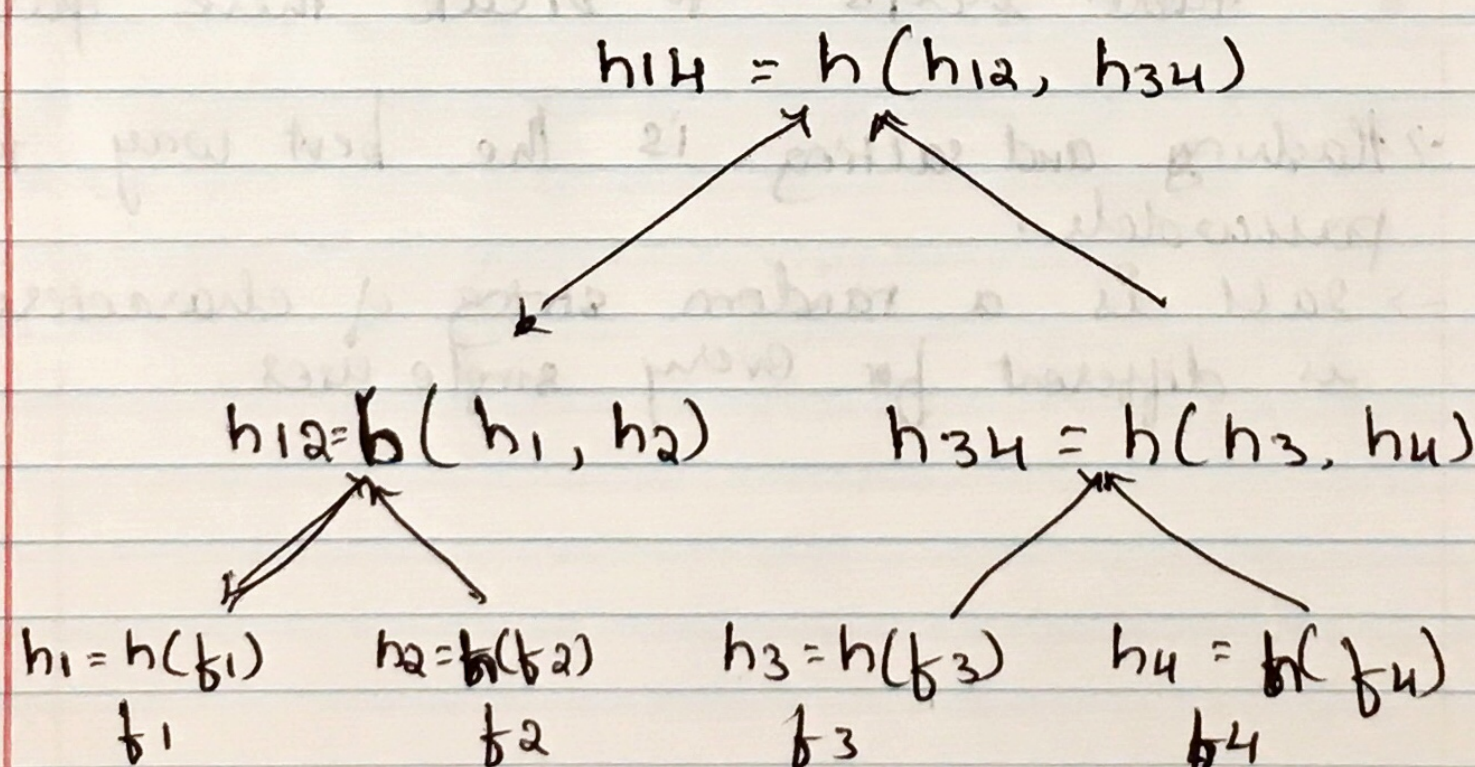 h14 = h(h12, h34)
h12=h(h1, h2) h34 = h(h3, h4)
h1 = h(f1) h2=h(f2) h3 = h(f3) h4 = h(f4)
f1 f2 f3 f4